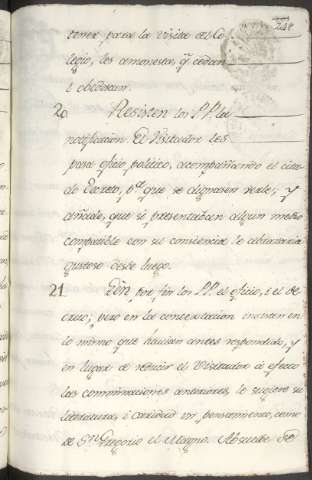 248
tener para la visita del Co-
legio, les amonesta, q.e cedan
i obedezcan.
20 Resisten los P.P. la
notificacion. El Visitador les
pasa oficio politico, acompañando el cita-
do Decreto, p.a que se dignasen verle; y
añade, que si presentaban algun medio
compatible con su conciencia le abrazaria
gustoso desde luego.
21 por fin los P.P. el oficio, i el de-
creto; pero en la contextacion insisten en
lo mismo que havian antes respondido, y
en lugar de reducir el Visitador á efecto
las comminaciones anteriores, le sugiere su
literatura, i caridad un pensamiento, como
de S.n Gregorio el Magno. Absuelve